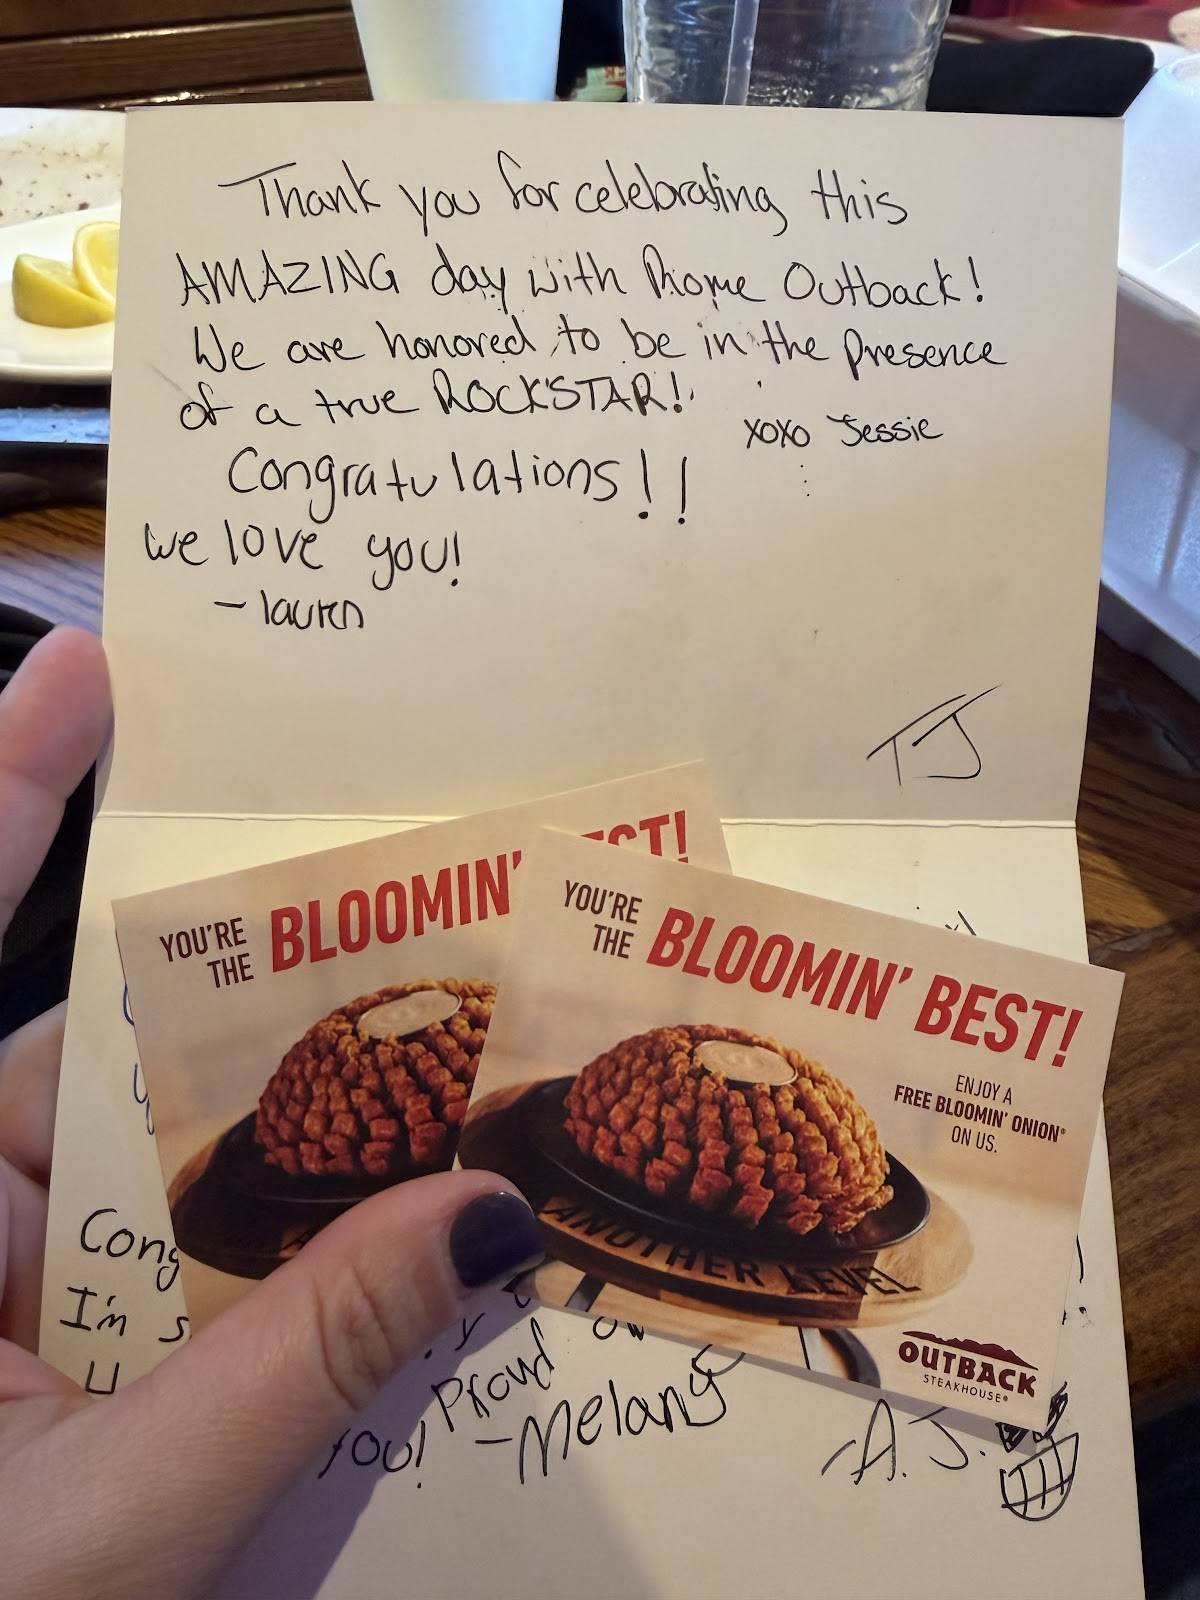 Thank you for celebrating this
AMAZING day with Rome Outback!
We are honored to be in the presence
of a true ROCKSTAR!
xoxo Jessie
Congratulations!!
we love you!
- lauren
TJ
YOU'RE
THE
BLOOMIN'
YOU'RE
THE
BLOOMIN' BEST!
ENJOY A
FREE BLOOMIN' ONION®
ON US.
ANOTHER LEVEL
OUTBACK
STEAKHOUSE®
Cong
I'm s
Proud
you!
-Melany
A.J.